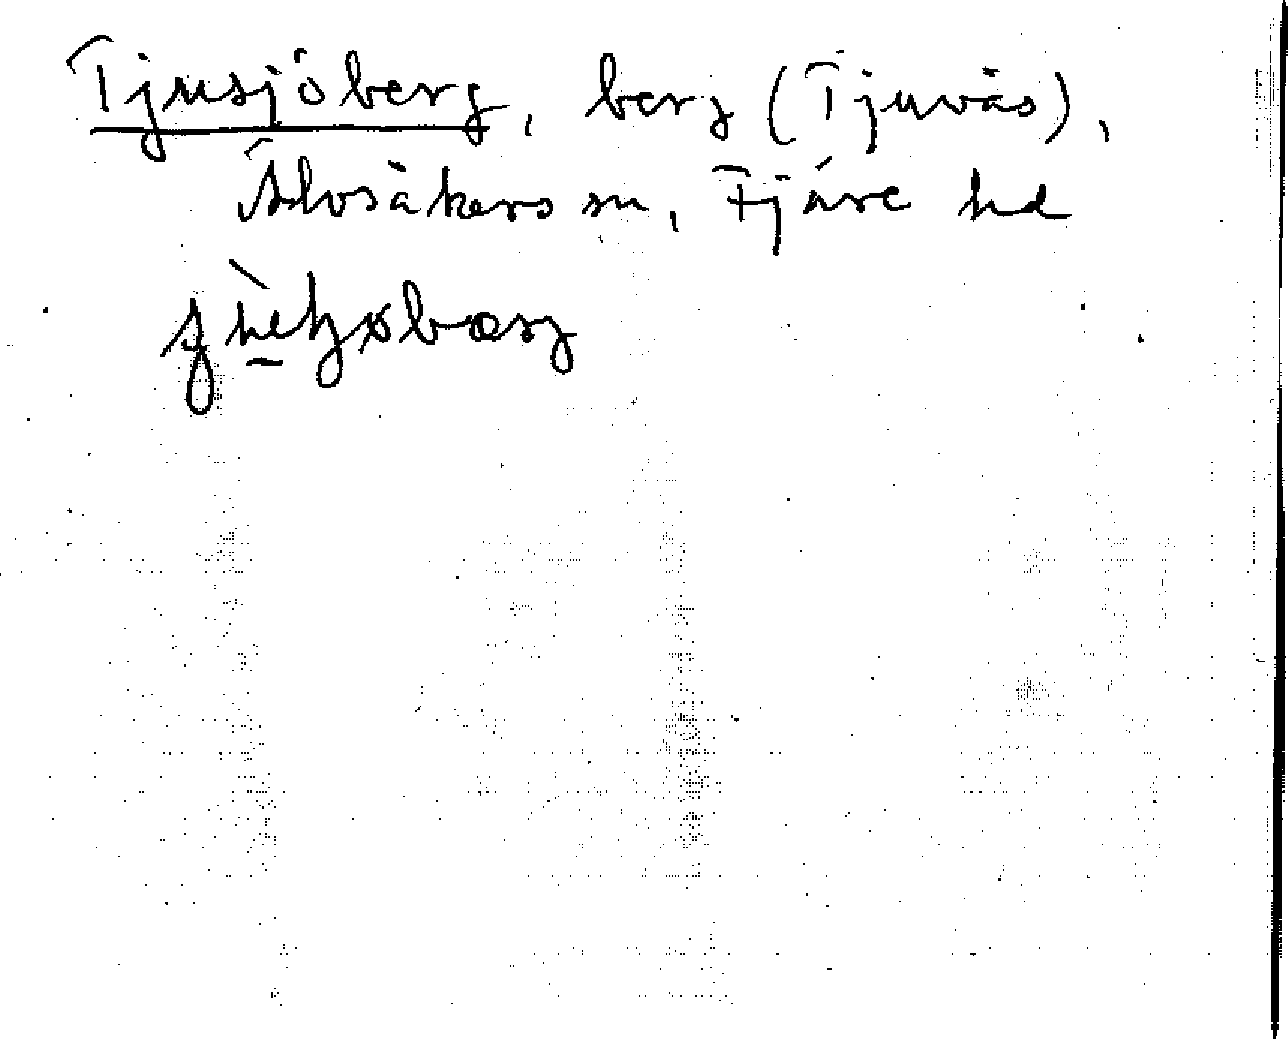 Tjusjöberg, berg (Tjuvås),
Älvsåkers sn, Fjäre hd